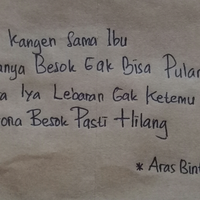 Kangen Sama Ibu
anya Besok Gak Bisa Pulan
a Iya Lebaran Gak Ketemu
ona Besok Pasti Hilang
* Aras Bin